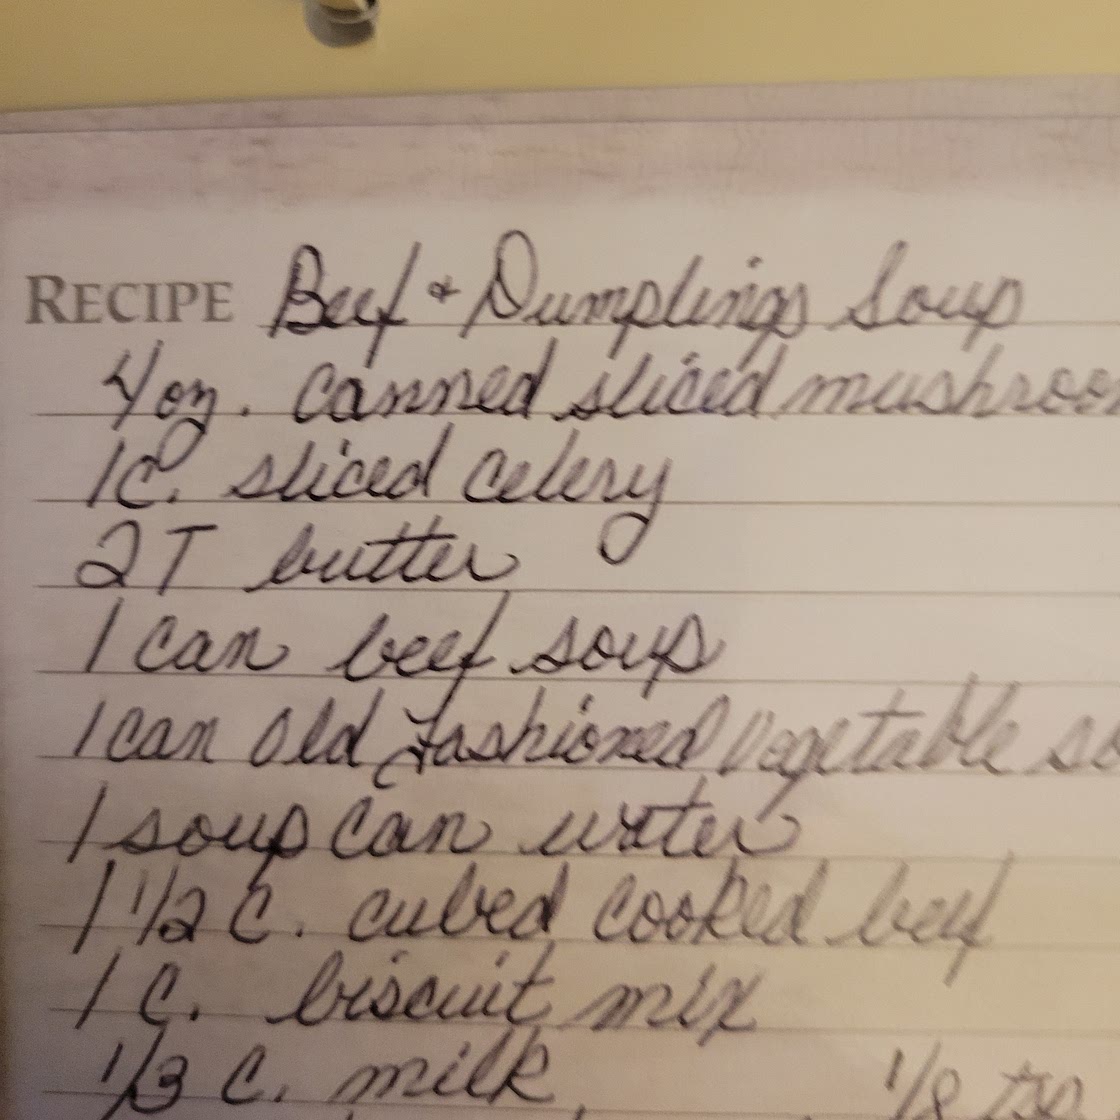 RECIPE Beef & Dumplings Soup
4 oz. canned sliced mushroom
1 C. sliced celery
2 T butter
1 can beef soup
1 can old fashioned vegetable so
1 soup can water
1 1/2 C. cubed cooked beef
1 C. biscuit mix
1/3 C. milk 1/8 tsp